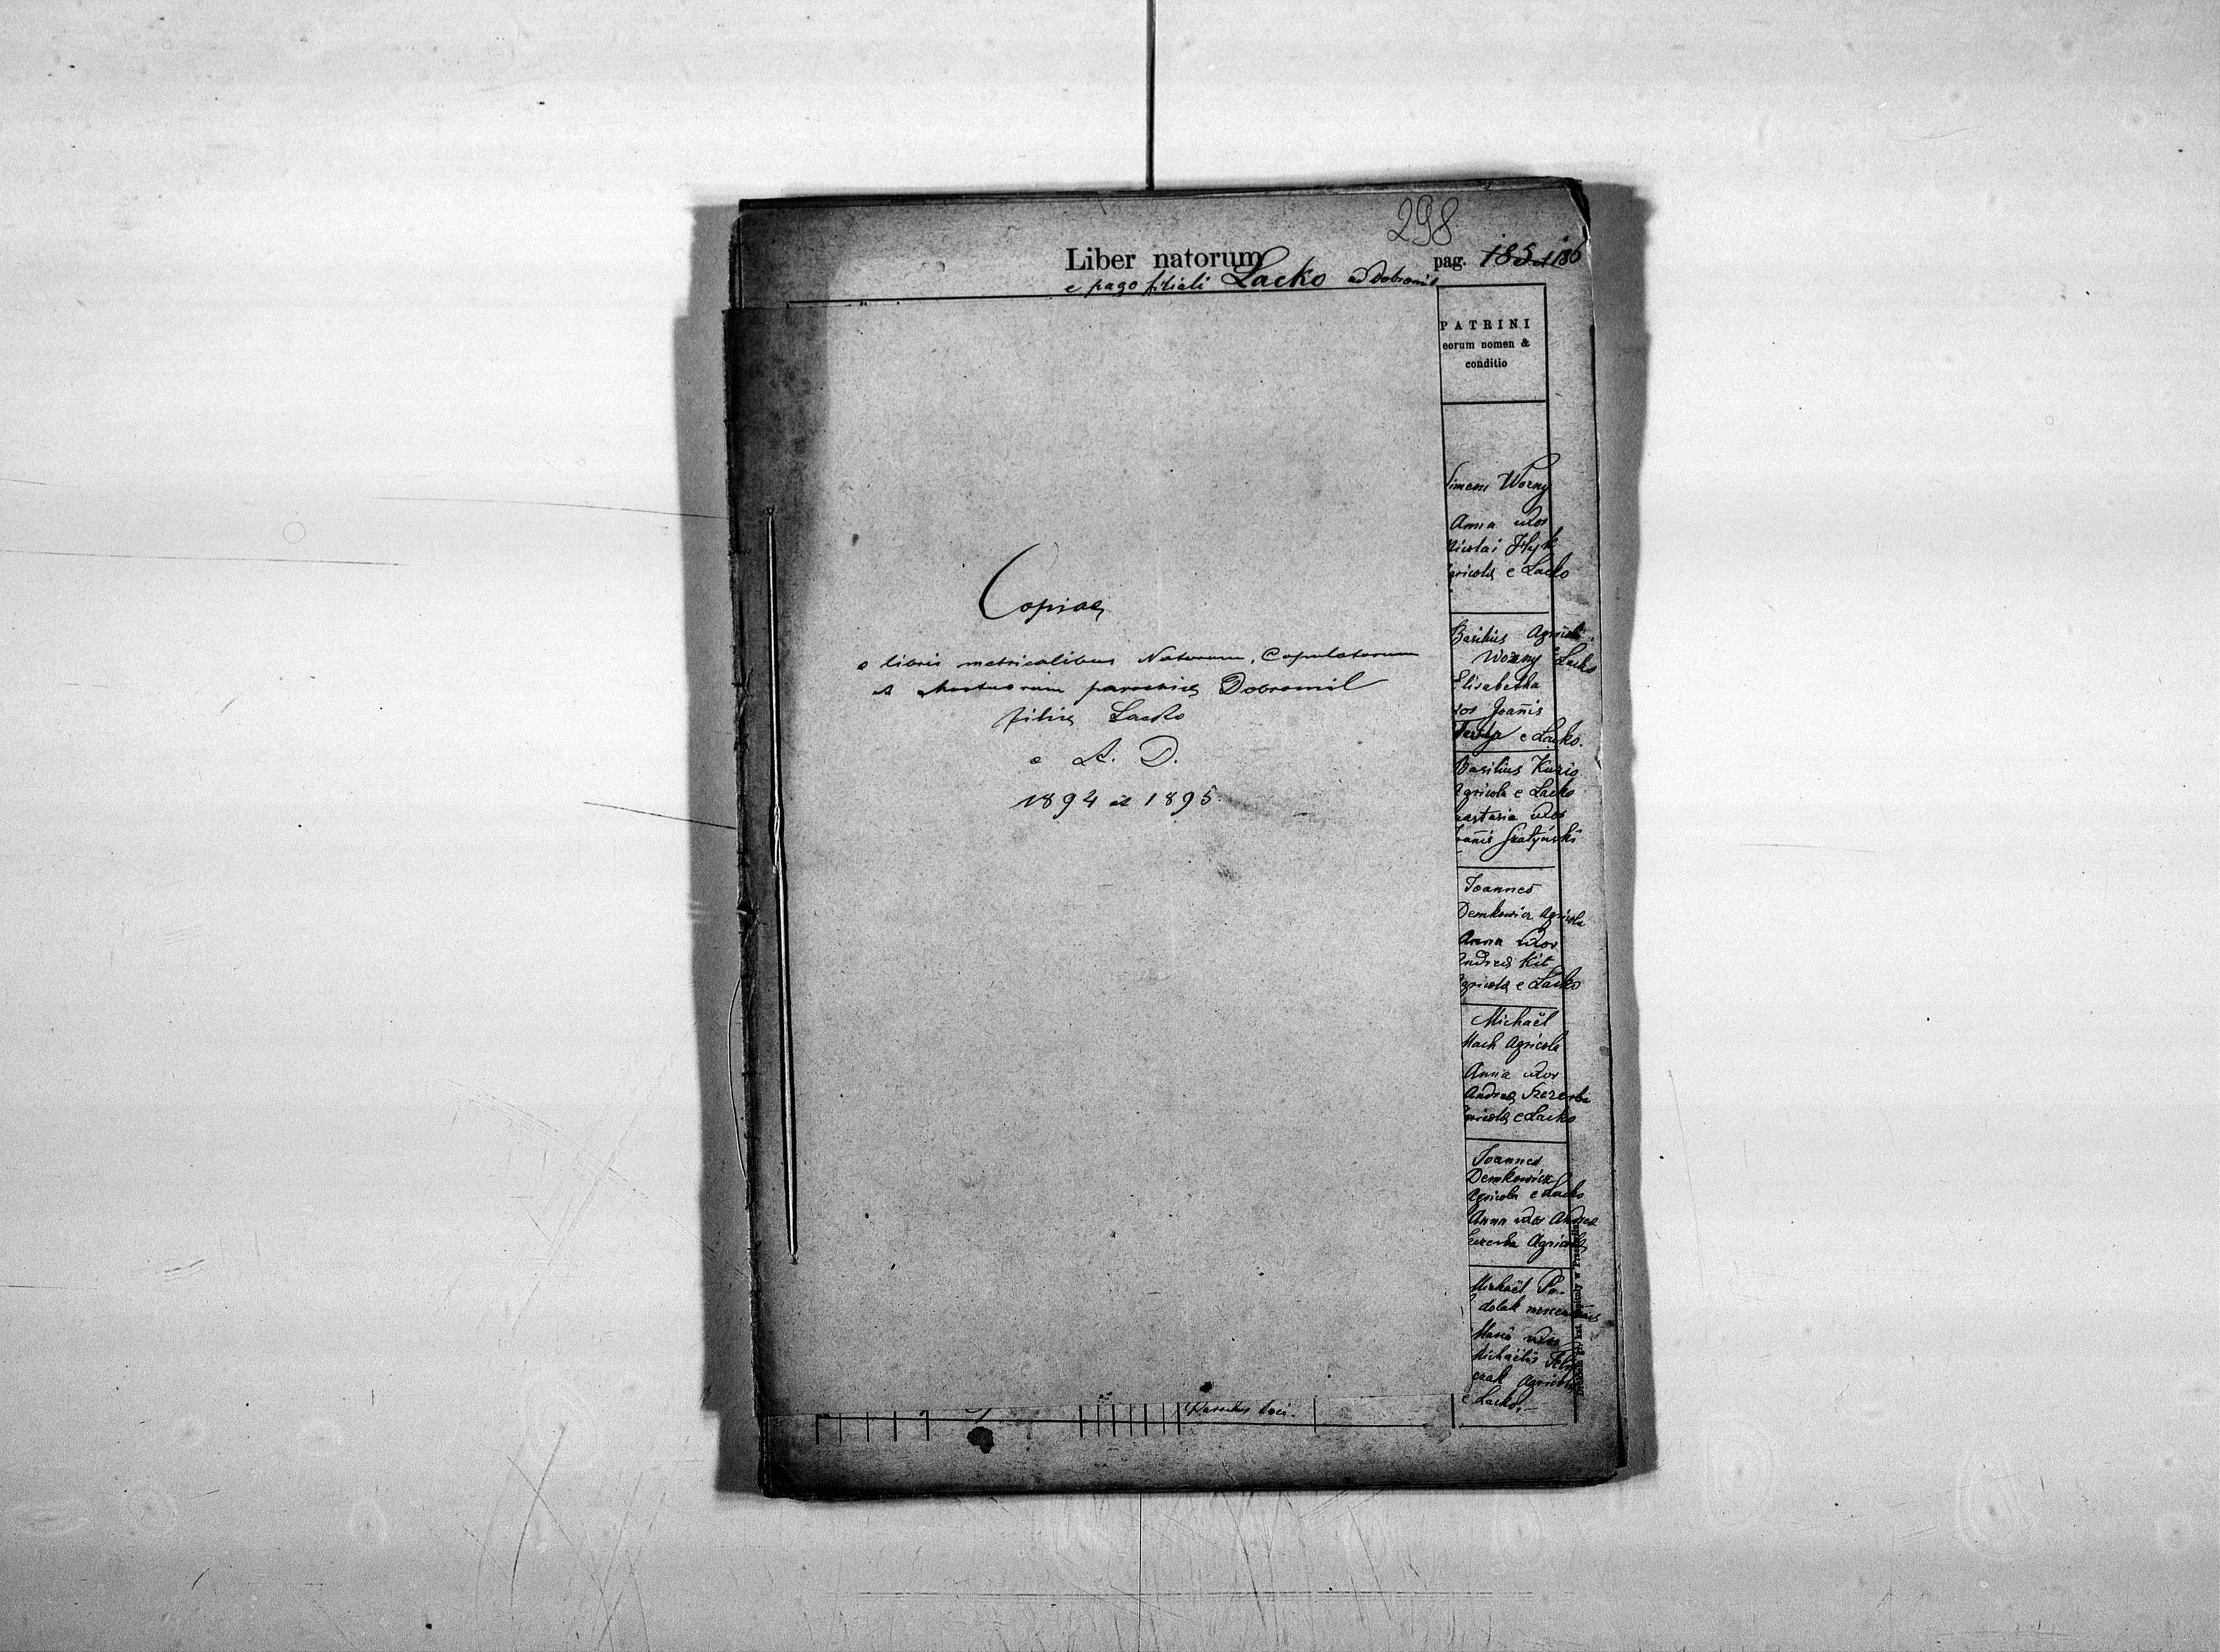 298
Liber natorum pag. 185 et 186
e pago filiali Lacko ad Dobromil
PATRINI
eorum nomen &
conditio
Copiae
e libris metricalibus Natorum, Copulatorum
et Mortuorum parochiae Dobromil
filiae Lacko
e A. D.
1894 et 1895.
Simeon Worny
Anna uxor
Nicolai
agricolae e Lacko
Basilius Agricola
Worny e Lacko
Elisabetha
uxor Joannis
e Lacko.
Basilius Kuzio
Agricola e Lacko
Anastasia uxor
Joannis
Joannes
Demkowicz Agricola
Anna uxor
Andreae Kit
Agricolae e Lacko
Michaël
Mach Agricola
Anna uxor
Andreae Szczerba
Agricolae e Lacko
Joannes
Demkowicz
Agricola e Lacko
Anna uxor Andreae
Szczerba Agricolae
Michaël Po-
dolak mercenarius
Maria uxor
Michaëlis
czak Agricolae
e Lacko.
Parochus loci.